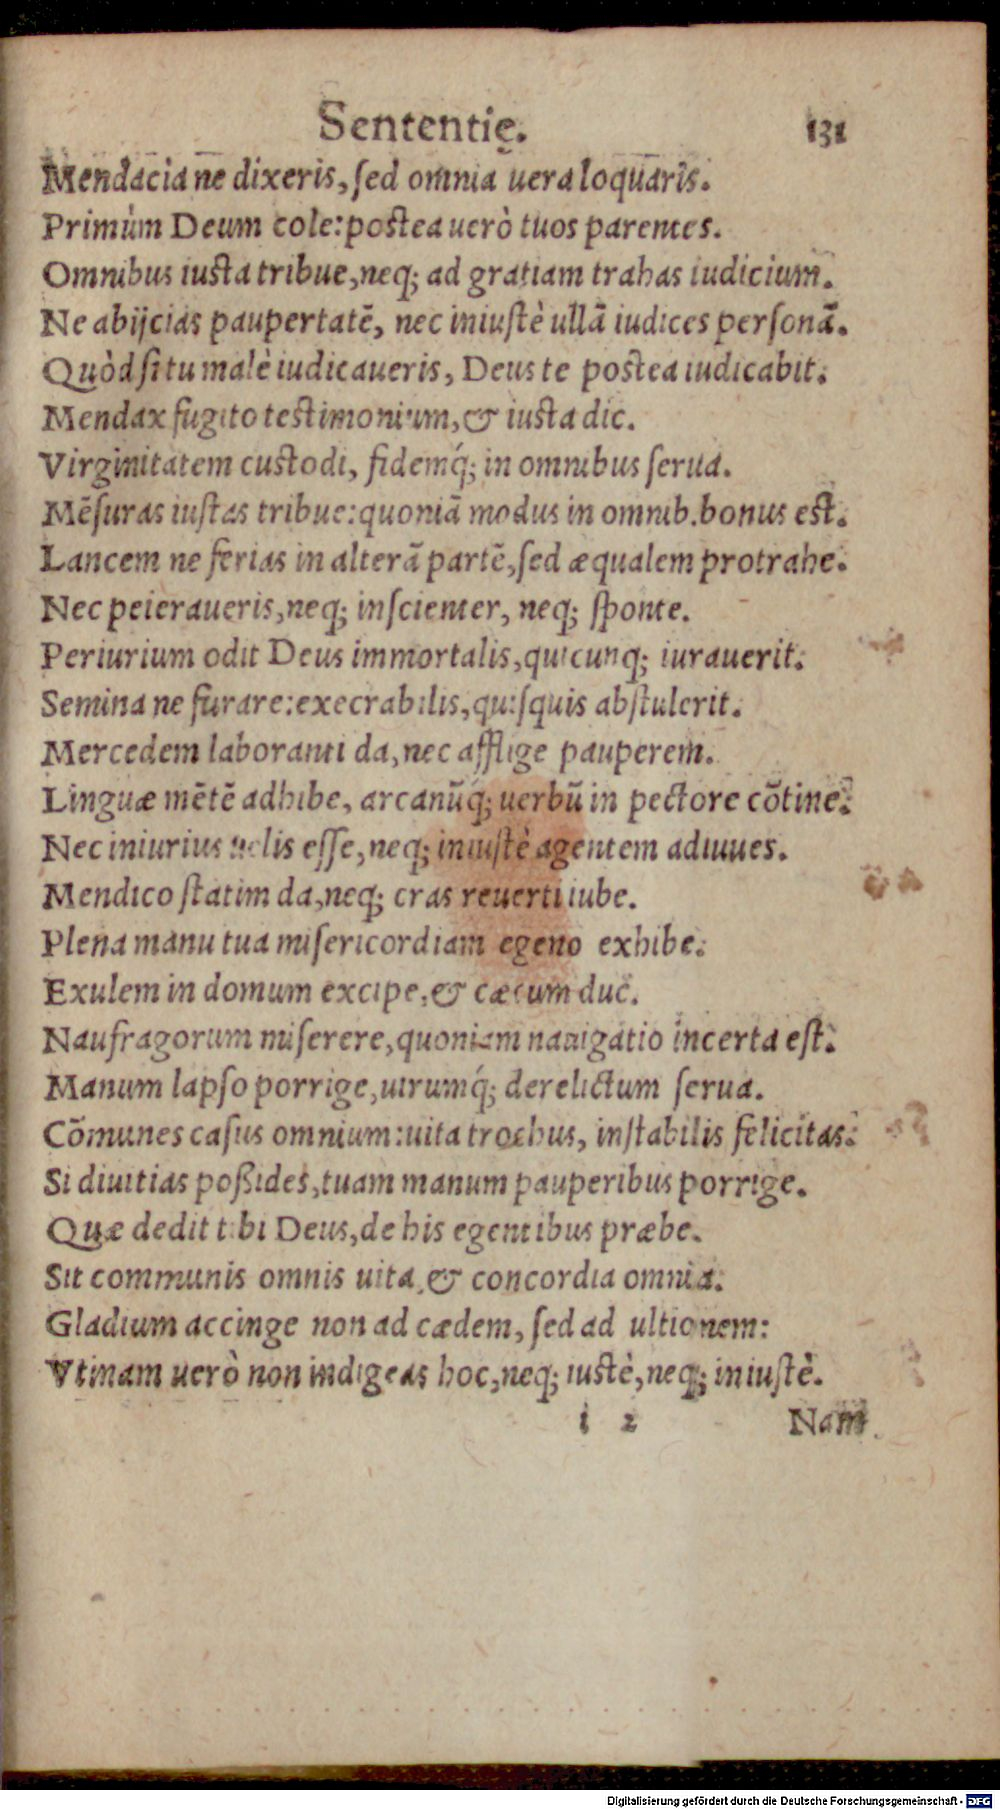 Sententię. 131
Mendacia ne dixeris, sed omnia uera loquaris.
Primùm Deum cole: postea uerò tuos parentes.
Omnibus iusta tribue, neq; ad gratiam trahas iudicium.
Ne abijcias paupertatē, nec iniustè ullā iudices personā.
Quòd si tu malè iudicaueris, Deus te postea iudicabit.
Mendax fugito testimonium, & iusta dic.
Virginitatem custodi, fidemq́; in omnibus serua.
Mēsuras iustas tribue: quoniā modus in omnib. bonus est.
Lancem ne ferias in alterā partē, sed æqualem protrahe.
Nec peieraueris, neq; inscienter, neq; sponte.
Periurium odit Deus immortalis, quicunq; iurauerit.
Semina ne furare: execrabilis, quisquis abstulerit.
Mercedem laboranti da, nec afflige pauperem.
Linguæ mētē adhibe, arcanūq́; uerbū in pectore cōtine.
Nec iniurius uelis esse, neq; iniustè agentem adiuues.
Mendico statim da, neq; cras reuerti iube.
Plena manu tua misericordiam egeno exhibe.
Exulem in domum excipe, & cæcum duc.
Naufragorum miserere, quoniam nauigatio incerta est.
Manum lapso porrige, uirumq́; derelictum serua.
Cōmunes casus omnium: uita trochus, instabilis felicitas.
Si diuitias poßides, tuam manum pauperibus porrige.
Quæ dedit tibi Deus, de his egentibus præbe.
Sit communis omnis uita, & concordia omnia.
Gladium accinge non ad cædem, sed ad ultionem:
Vtinam uerò non indigeas hoc, neq; iustè, neq; iniustè.
i 2 Nam
Digitalisierung gefördert durch die Deutsche Forschungsgemeinschaft - DFG